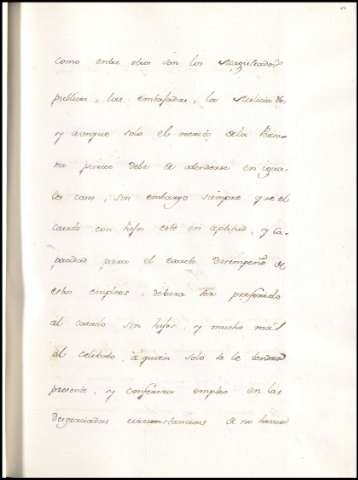 como entre otra son los Magistrados
publicos, las embajadas, la Milicia &c,
y aunque solo el merito de la Perso-
na parece debe a atenderse en igua-
les casos, sin embargo siempre que el
casado con hijos esté en aptitud, y ca-
pacidad para el exacto desempeño de
estos empleos, debera ser preferido
al casado sin hijos, y mucho mas
al celibato, á quien solo se le tendra
presente, y conferirá empleo en las
desgraciadas circunstancias de no haver